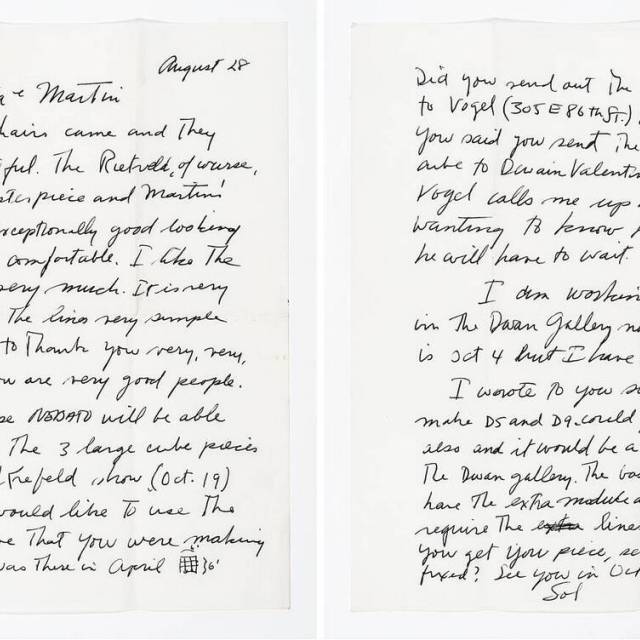 August 28
& Martin
hairs came and They
ful. The Rietveld, of course,
sterpiece and Martin's
exceptionally good looking
comfortable. I like The
very much. It is very
The lines very simple
to Thank you very, very,
ou are very good people.
se NEBATO will be able
The 3 large cube pieces
Krefeld show (Oct. 19)
would like to use The
e That you were making
was There in April 36"
Did you send out The
to Vogel (305 E 86th ST.)
You said you send The
cube to Dewain Valentin
Vogel calls me up
wanting to know
he will have to wait.
I am working
in The Dwan Gallery
is Oct 4 but I have
I wrote to you
make D5 and D9. could
also and it would be a
The Dwan gallery. The
have The extra module
require The extra line
you get your piece,
fixed? See you in Oct
Sol